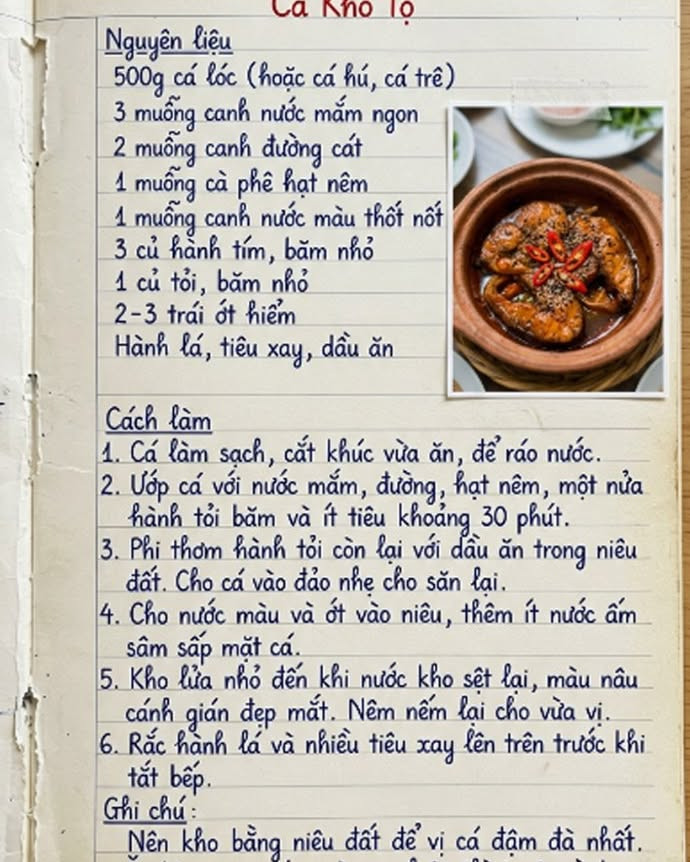 Cá Kho Tộ
Nguyên liệu
500g cá lóc (hoặc cá hú, cá trê)
3 muỗng canh nước mắm ngon
2 muỗng canh đường cát
1 muỗng cà phê hạt nêm
1 muỗng canh nước màu thốt nốt
3 củ hành tím, băm nhỏ
1 củ tỏi, băm nhỏ
2-3 trái ớt hiểm
Hành lá, tiêu xay, dầu ăn
Cách làm
1. Cá làm sạch, cắt khúc vừa ăn, để ráo nước.
2. Ướp cá với nước mắm, đường, hạt nêm, một nửa
hành tỏi băm và ít tiêu khoảng 30 phút.
3. Phi thơm hành tỏi còn lại với dầu ăn trong niêu
đất. Cho cá vào đảo nhẹ cho săn lại.
4. Cho nước màu và ớt vào niêu, thêm ít nước ấm
sâm sấp mặt cá.
5. Kho lửa nhỏ đến khi nước kho sệt lại, màu nâu
cánh gián đẹp mắt. Nêm nếm lại cho vừa vị.
6. Rắc hành lá và nhiều tiêu xay lên trên trước khi
tắt bếp.
Ghi chú:
Nên kho bằng niêu đất để vị cá đậm đà nhất.